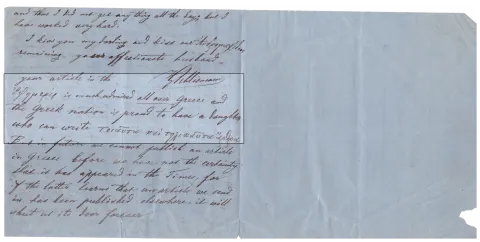 and thus I did not get any thing all the days but I
have worked very hard.
I kiss you my darling and kiss our
remaining your affectionate husband
your article in the
is much admired all over Greece and
the Greek nation is proud to have a daughter
who can write τοιαῦτα καὶ τηλικαῦτα
in future we cannot publish an article
in Greece before we have not the certainty
that it has appeared in the Times, for
if the latter learns that an article we send
in has been published elsewhere it will
shut us its door forever